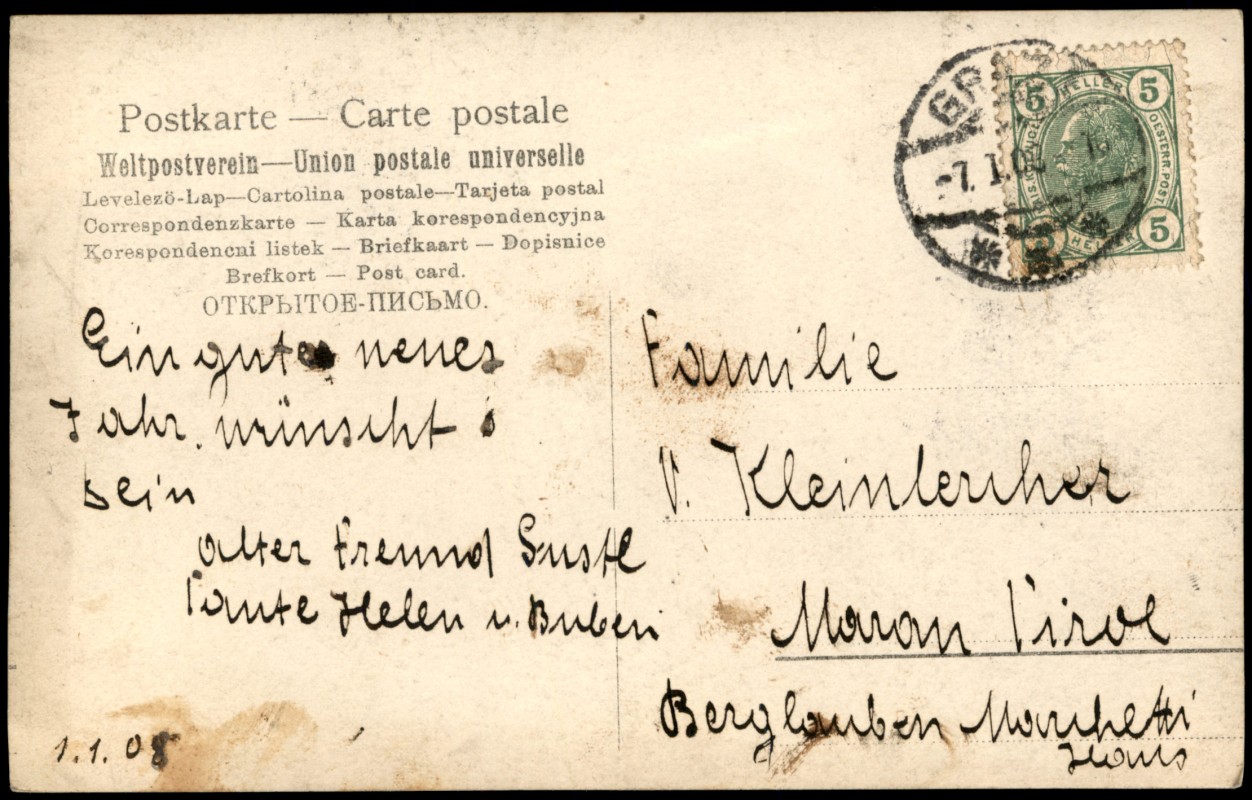 Postkarte — Carte postale
Weltpostverein—Union postale universelle
Levelező-Lap—Cartolina postale—Tarjeta postal
Correspondenzkarte — Karta korespondencyjna
Korespondencni listek — Briefkaart — Dopisnice
Brefkort — Post card.
ОТКРЫТОЕ-ПИСЬМО.
GRAZ
-7. I. 0
5 HELLER 5
OESTERR. POST
HELLER 5
Ein gutes neues
Jahr. wünscht
Dein
alter Freund Gustl
Tante Helen u. Buberi
1.1.08
Familie
v. Kleinlercher
Maran Tirol
Berglauben Marchetti
Haus